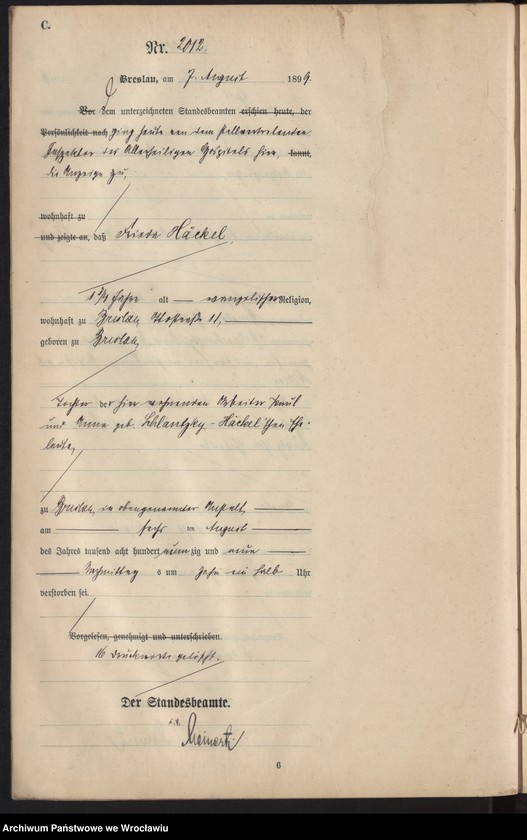 C.
Nr. 2012.
Breslau, am 7. August 1899.
Vor dem unterzeichneten Standesbeamten erschien heute, der
Persönlichkeit nach ging heute von dem stellvertretenden
Inspektor des Allerheiligen Hospitals hier, kannt,
die Anzeige zu,
wohnhaft zu
und zeigte an, daß Frieda Häckel,
1 3/4 Jahre alt evangelischer Religion,
wohnhaft zu Breslau, 11,
geboren zu Breslau,
Tochter der hier wohnenden Arbeiter Paul
und Anna geb. Schlantzky-Häckel'schen Ehe-
leute,
zu Breslau, in obengenannter Anstalt,
am sechs ten August
des Jahres tausend acht hundert neunzig und neun
Nachmittags um zehn ein halb Uhr
verstorben sei.
Vorgelesen, genehmigt und unterschrieben.
16 Druckworte gelöscht.
Der Standesbeamte.
Meinert
6
Archiwum Państwowe we Wrocławiu